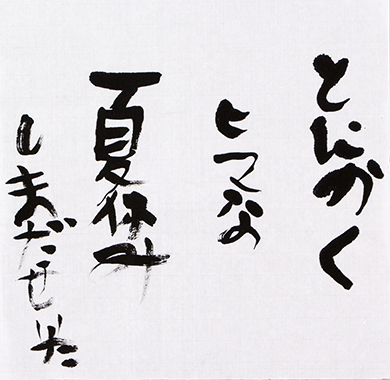 とにかく
ヒマな
夏休み
しまだせいた